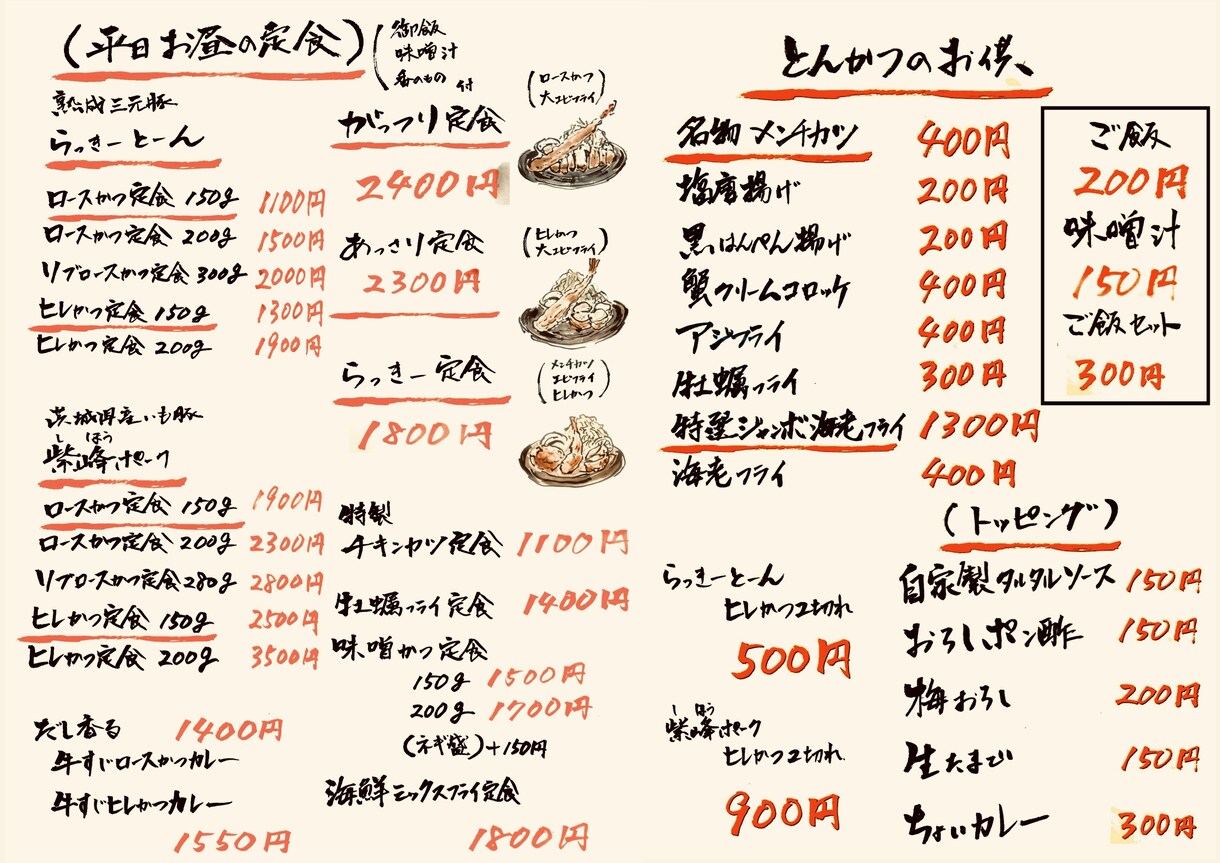 (平日お昼の定食)
(御飯
味噌汁
香のもの 付
熟成三元豚
らっきーとーん
ロースかつ定食 150g 1100円
ロースかつ定食 200g 1500円
リブロースかつ定食 300g 2000円
ヒレかつ定食 150g 1300円
ヒレかつ定食 200g 1900円
茨城県産いも豚
しほう
紫峰ポーク
ロースかつ定食 150g 1900円
ロースかつ定食 200g 2300円
リブロースかつ定食280g 2800円
ヒレかつ定食 150g 2500円
ヒレかつ定食 200g 3500円
だし香る 1400円
牛すじロースかつカレー
牛すじヒレかつカレー
1550円
がっつり定食
(ロースかつ
大エビフライ)
2400円
あっさり定食
(ヒレかつ
大エビフライ)
2300円
らっきー定食
(メンチカツ
エビフライ
ヒレかつ)
1800円
特製
チキンカツ定食 1100円
牡蠣フライ定食 1400円
味噌かつ定食
150g 1500円
200g 1700円
(ネギ盛)+150円
海鮮ミックスフライ定食
1800円
とんかつのお供、
名物 メンチカツ 400円
塩唐揚げ 200円
黒はんぺん揚げ 200円
蟹クリームコロッケ 400円
アジフライ 400円
牡蠣フライ 300円
特選ジャンボ海老フライ 1300円
海老フライ 400円
ご飯
200円
味噌汁
150円
ご飯セット
300円
らっきーとーん
ヒレかつ2切れ
500円
しほう
紫峰ポーク
ヒレかつ2切れ
900円
(トッピング)
自家製タルタルソース 150円
おろしポン酢 150円
梅おろし 200円
生たまご 150円
ちょいカレー 300円